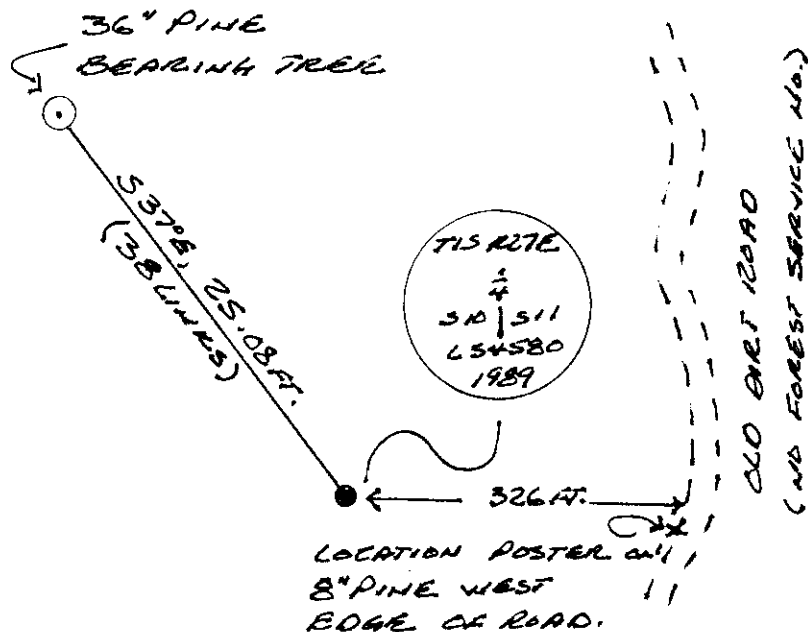 36" PINE
BEARING TREE
S37°E, 25.08 FT.
(38 LINKS)
T1S R27E
1/4
S10 | S11
LS4580
1989
326 FT.
LOCATION POSTER ON
8" PINE WEST
EDGE OF ROAD.
OLD DIRT ROAD
(NO FOREST SERVICE NO.)